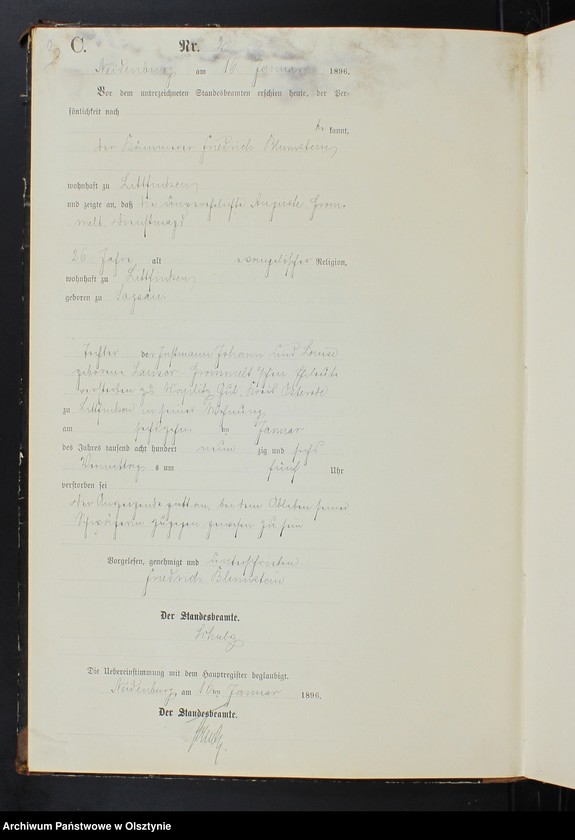 C. Nr. 2
Neidenburg am 16 Januar 1896.
Vor dem unterzeichneten Standesbeamten erschien heute, der Per-
sönlichkeit nach
be kannt,
der Kämmerer Friedrich Blumstein,
wohnhaft zu Littfinken,
und zeigte an, daß die unverehelichte Auguste
Dienstmagd
26 Jahre alt evangelischer Religion,
wohnhaft zu Littfinken,
geboren zu
Tochter der Instmann Johann und Louise
geborene Eheleute
verstorben zu Kreis Osterode
zu Littfinken in seiner Wohnung,
am sechszehn ten Januar
des Jahres tausend acht hundert neun zig und sechs
Vormittags um fünf Uhr
verstorben sei
der Anzeigende gab an, bei dem Ableben seiner
Schwägerin zugegen gewesen zu sein
Vorgelesen, genehmigt und unterschrieben
Friedrich Blumstein
Der Standesbeamte.
Schulz
Die Uebereinstimmung mit dem Hauptregister beglaubigt.
Neidenburg, am 16ten Januar 1896.
Der Standesbeamte.
Schulz.
Archiwum Państwowe w Olsztynie